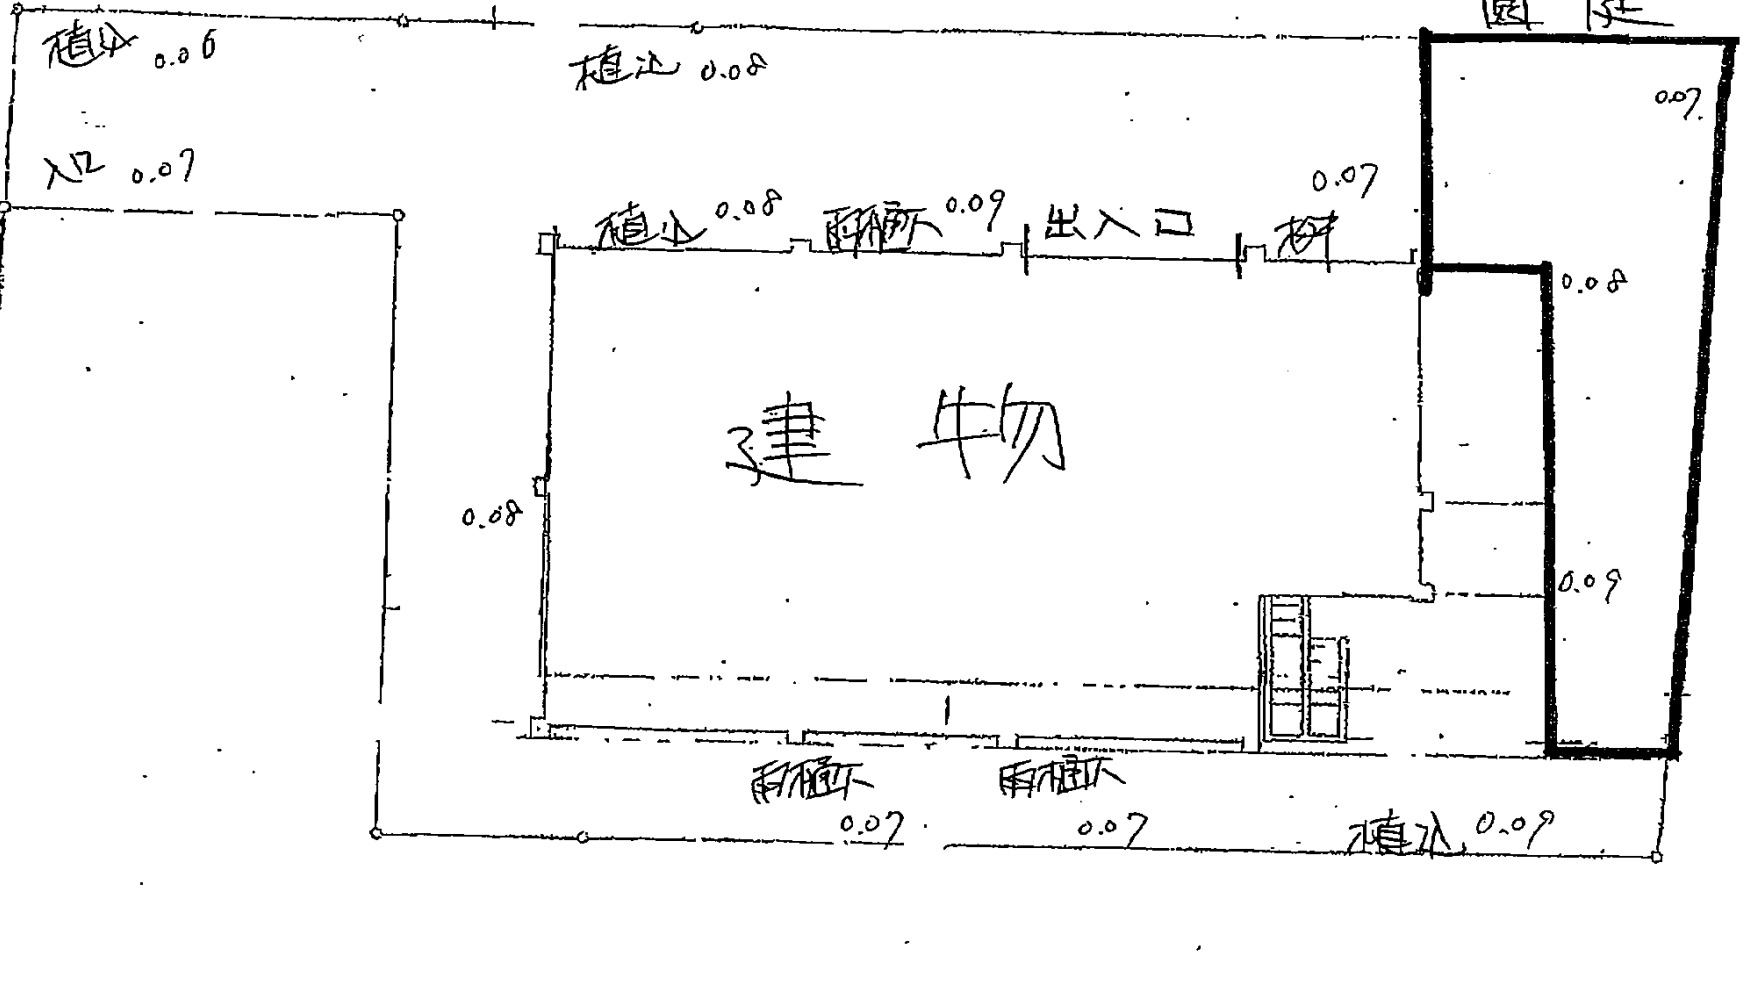 園庭
植込 0.06
植込 0.08
0.07
入口 0.07
0.07
植込 0.08
雨樋下 0.09
出入口
桝
0.08
建物
0.08
0.09
雨樋下
雨樋下
0.07
0.07
植込 0.09